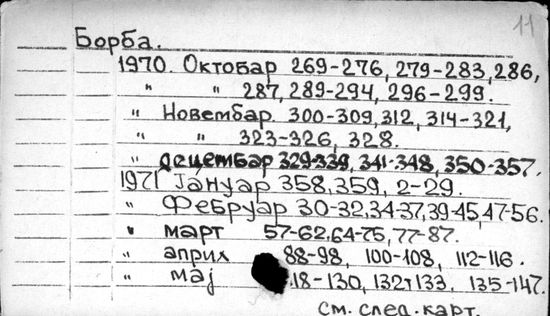 11
Борба.
1970. Октобар 269-276, 279-283, 286,
" " 287, 289-294, 296-299.
" Новембар 300-309, 312, 314-321,
" " 323-326, 328.
" Децембар 329-339, 341-348, 350-357.
1971 Јануар 358, 359, 2-29.
" Фебруар 30-32, 34-37, 39-45, 47-56.
" март 57-62, 64-75, 77-87.
" април 88-98, 100-108, 112-116.
" мај 18-130, 132, 133, 135-147.
см. след. карт.